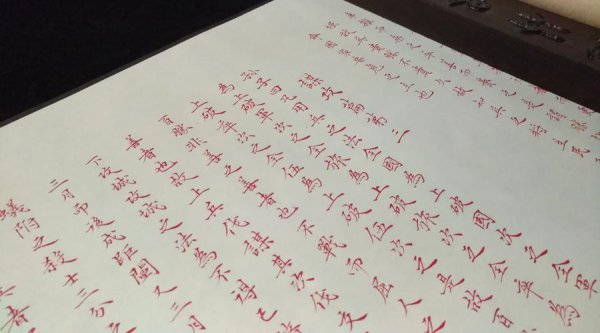 強故兵貴勝不貴久故知兵之將生民
命國家安危之主也
謀攻篇第三
孫子曰凡用兵之法全國為上破國次之全軍
為上破軍次之全旅為上破旅次之全卒為
上破卒次之全伍為上破伍次之是故百
百勝非善之善者也不戰而屈人之
善者也故上兵伐謀其次伐交
下攻城攻城之法為不得已
三月而後成距闉又三月
蟻附之殺士三分